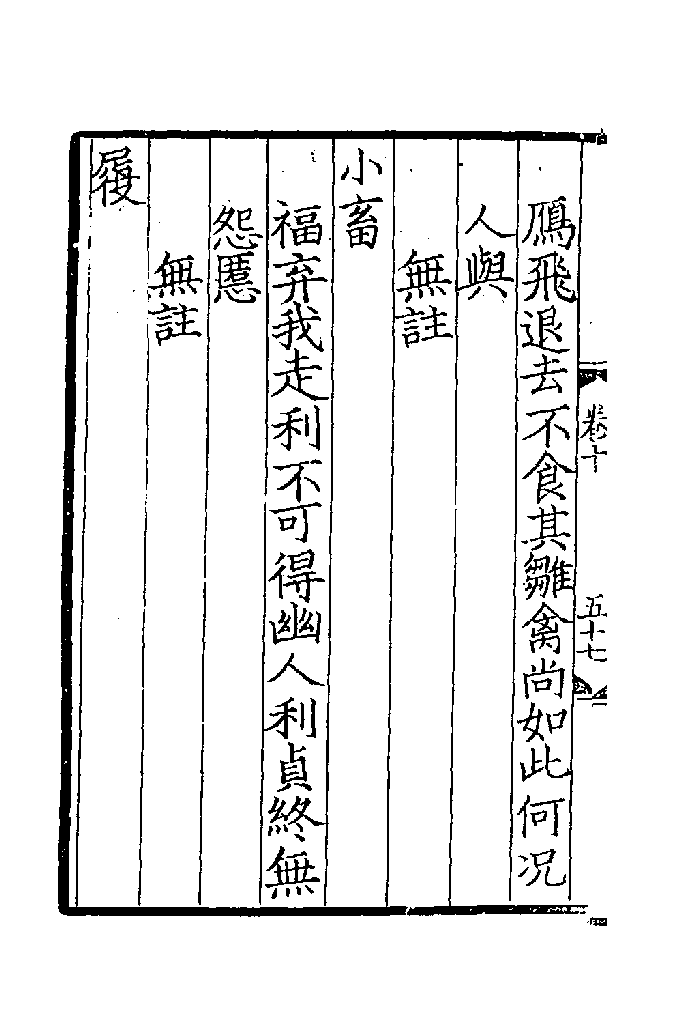 鴈飛退去不食其雛禽尚如此何况
人與
無註
小畜
福弃我走利不可得幽人利貞終無
怨慝
無註
履
卷十
五十七